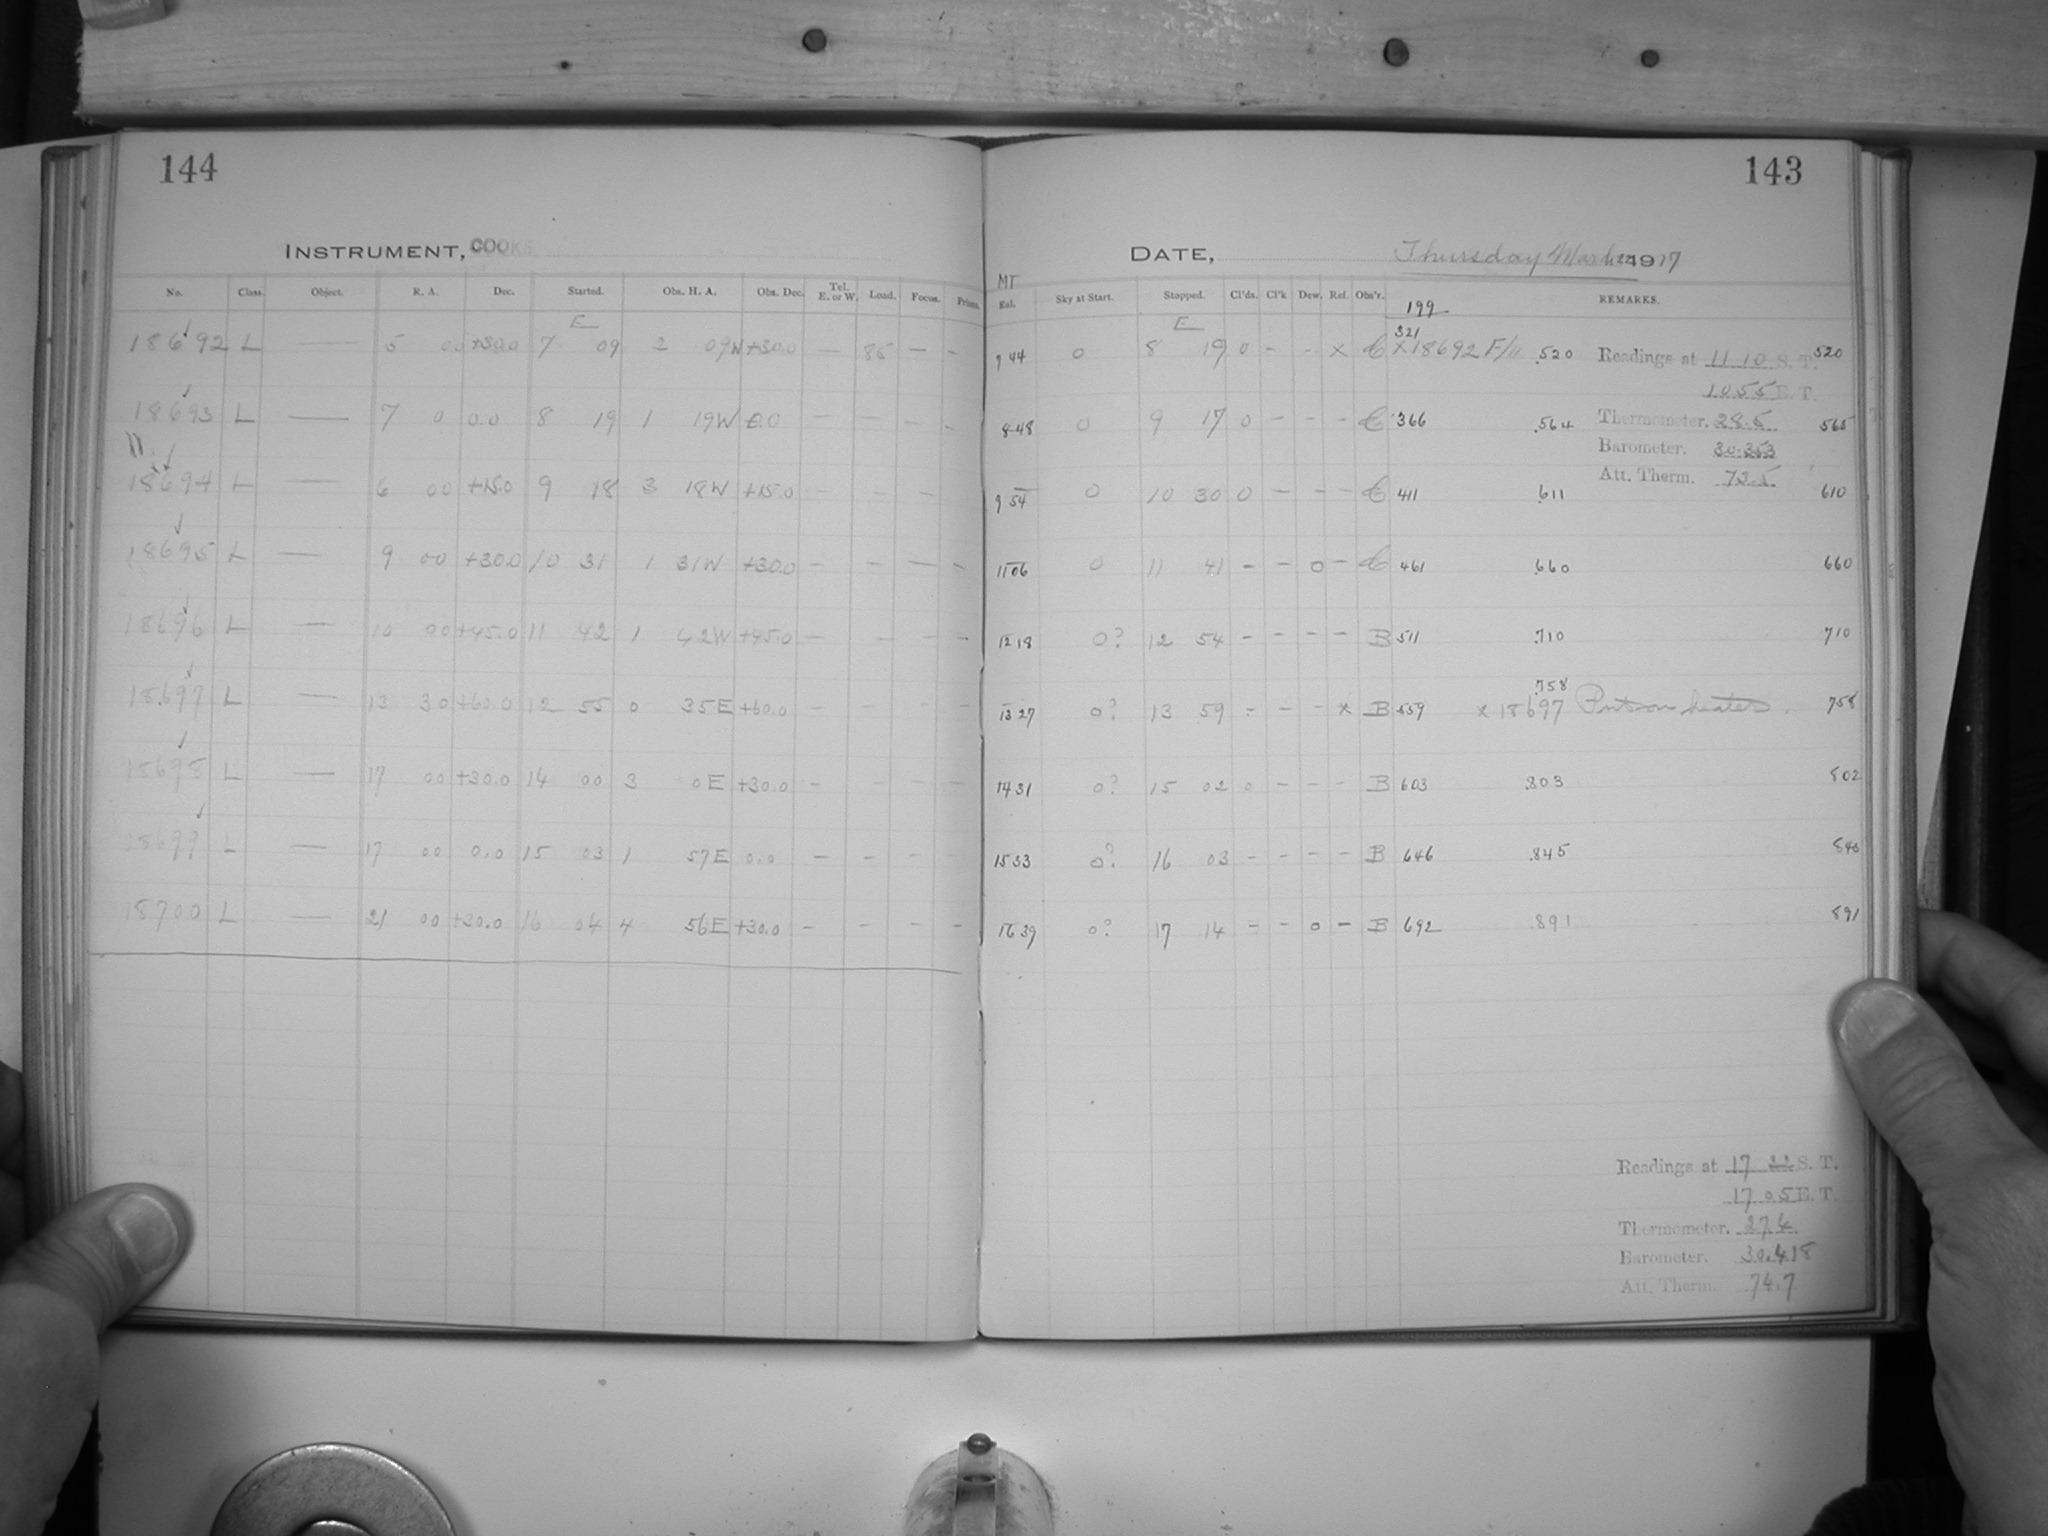 144
INSTRUMENT, COOKE
No. Class. Object. R. A. Dec. Started. Obs. H. A. Obs. Dec. Tel. E. or W. Load. Focus. Prism.
E
18692 L — 5 00 +30.0 7 09 2 09W +30.0 — 85 — —
18693 L — 7 0 0.0 8 19 1 19W 0.0 — — — —
18694 L — 6 00 +15.0 9 18 3 18W +15.0 — — — —
18695 L — 9 00 +30.0 10 31 1 31W +30.0 — — — —
18696 L — 10 00 +45.0 11 42 1 42W +45.0 — — — —
18697 L — 13 30 +60.0 12 55 0 35E +60.0 — — — —
18698 L — 17 00 +30.0 14 00 3 0E +30.0 — — — —
18699 L — 17 00 0.0 15 03 1 57E 0.0 — — — —
18700 L — 21 00 +30.0 16 04 4 56E +30.0 — — — —
143
DATE, Thursday March 22 1917
MT
Exl. Sky at Start. Stopped. Cl'ds. Cl'k Dew. Ref. Obs'r. 199 REMARKS.
E 321
7 44 0 8 19 0 - - x C x 18692 F/11 .520 Readings at 11 10 S. T. 520
10 55 E. T.
8 48 0 9 17 0 - - - C 366 .564 Thermometer. 28.5 565
Barometer. 30.353
Att. Therm. 73.5
9 54 0 10 30 0 - - - C 411 .611 610
11 06 0 11 41 - - 0 - C 461 .660 660
12 18 0? 12 54 - - - - B 511 .710 710
.758
13 27 0? 13 59 - - - x B 559 x 18697 Put on heater. 758
14 31 0? 15 02 0 - - - B 603 .803 802
15 33 0? 16 03 - - - - B 646 .845
16 39 0? 17 14 - - 0 - B 692 .891 891
Readings at 17 22 S. T.
17 05 E. T.
Thermometer. 27.4
Barometer. 30.418
Att. Therm. 74.7